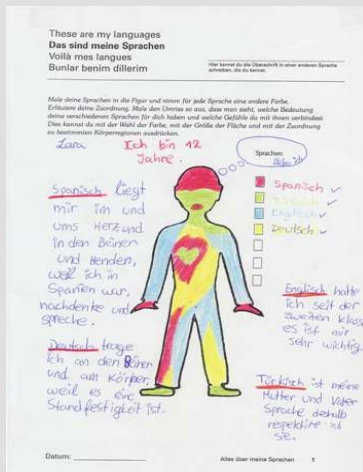 These are my languages
Das sind meine Sprachen
Voilà mes langues
Bunlar benim dillerim
Hier kannst du die Überschrift in einer anderen Sprache
schreiben, die du kannst.
Male deine Sprachen in die Figur und nimm für jede Sprache eine andere Farbe.
Erläutere deine Zuordnung. Male den Umriss so aus, dass man sieht, welche Bedeutung
deine verschiedenen Sprachen für dich haben und welche Gefühle du mit ihnen verbindest.
Dies kannst du mit der Wahl der Farbe, mit der Größe der Fläche und mit der Zuordnung
zu bestimmten Körperregionen ausdrücken.
Lara Ich bin 12
Jahre.
Sprachen:
Spanisch
Türkisch
Englisch
Deutsch
Spanisch liegt
mir im und
ums Herz und
in den Beinen
und Henden,
weil ich in
Spanien war,
nachdenke und
spreche.
Deutsch trage
ich an den Beinen
und am Körper,
weil es eine
Standfestigkeit ist.
Englisch hatte
ich seit der
zweiten klass
es ist mir
sehr wichtig.
Türkisch ist meine
Mutter und Vater
Sprache deshalb
respektire ich
sie.
Datum:
Alles über meine Sprachen 1